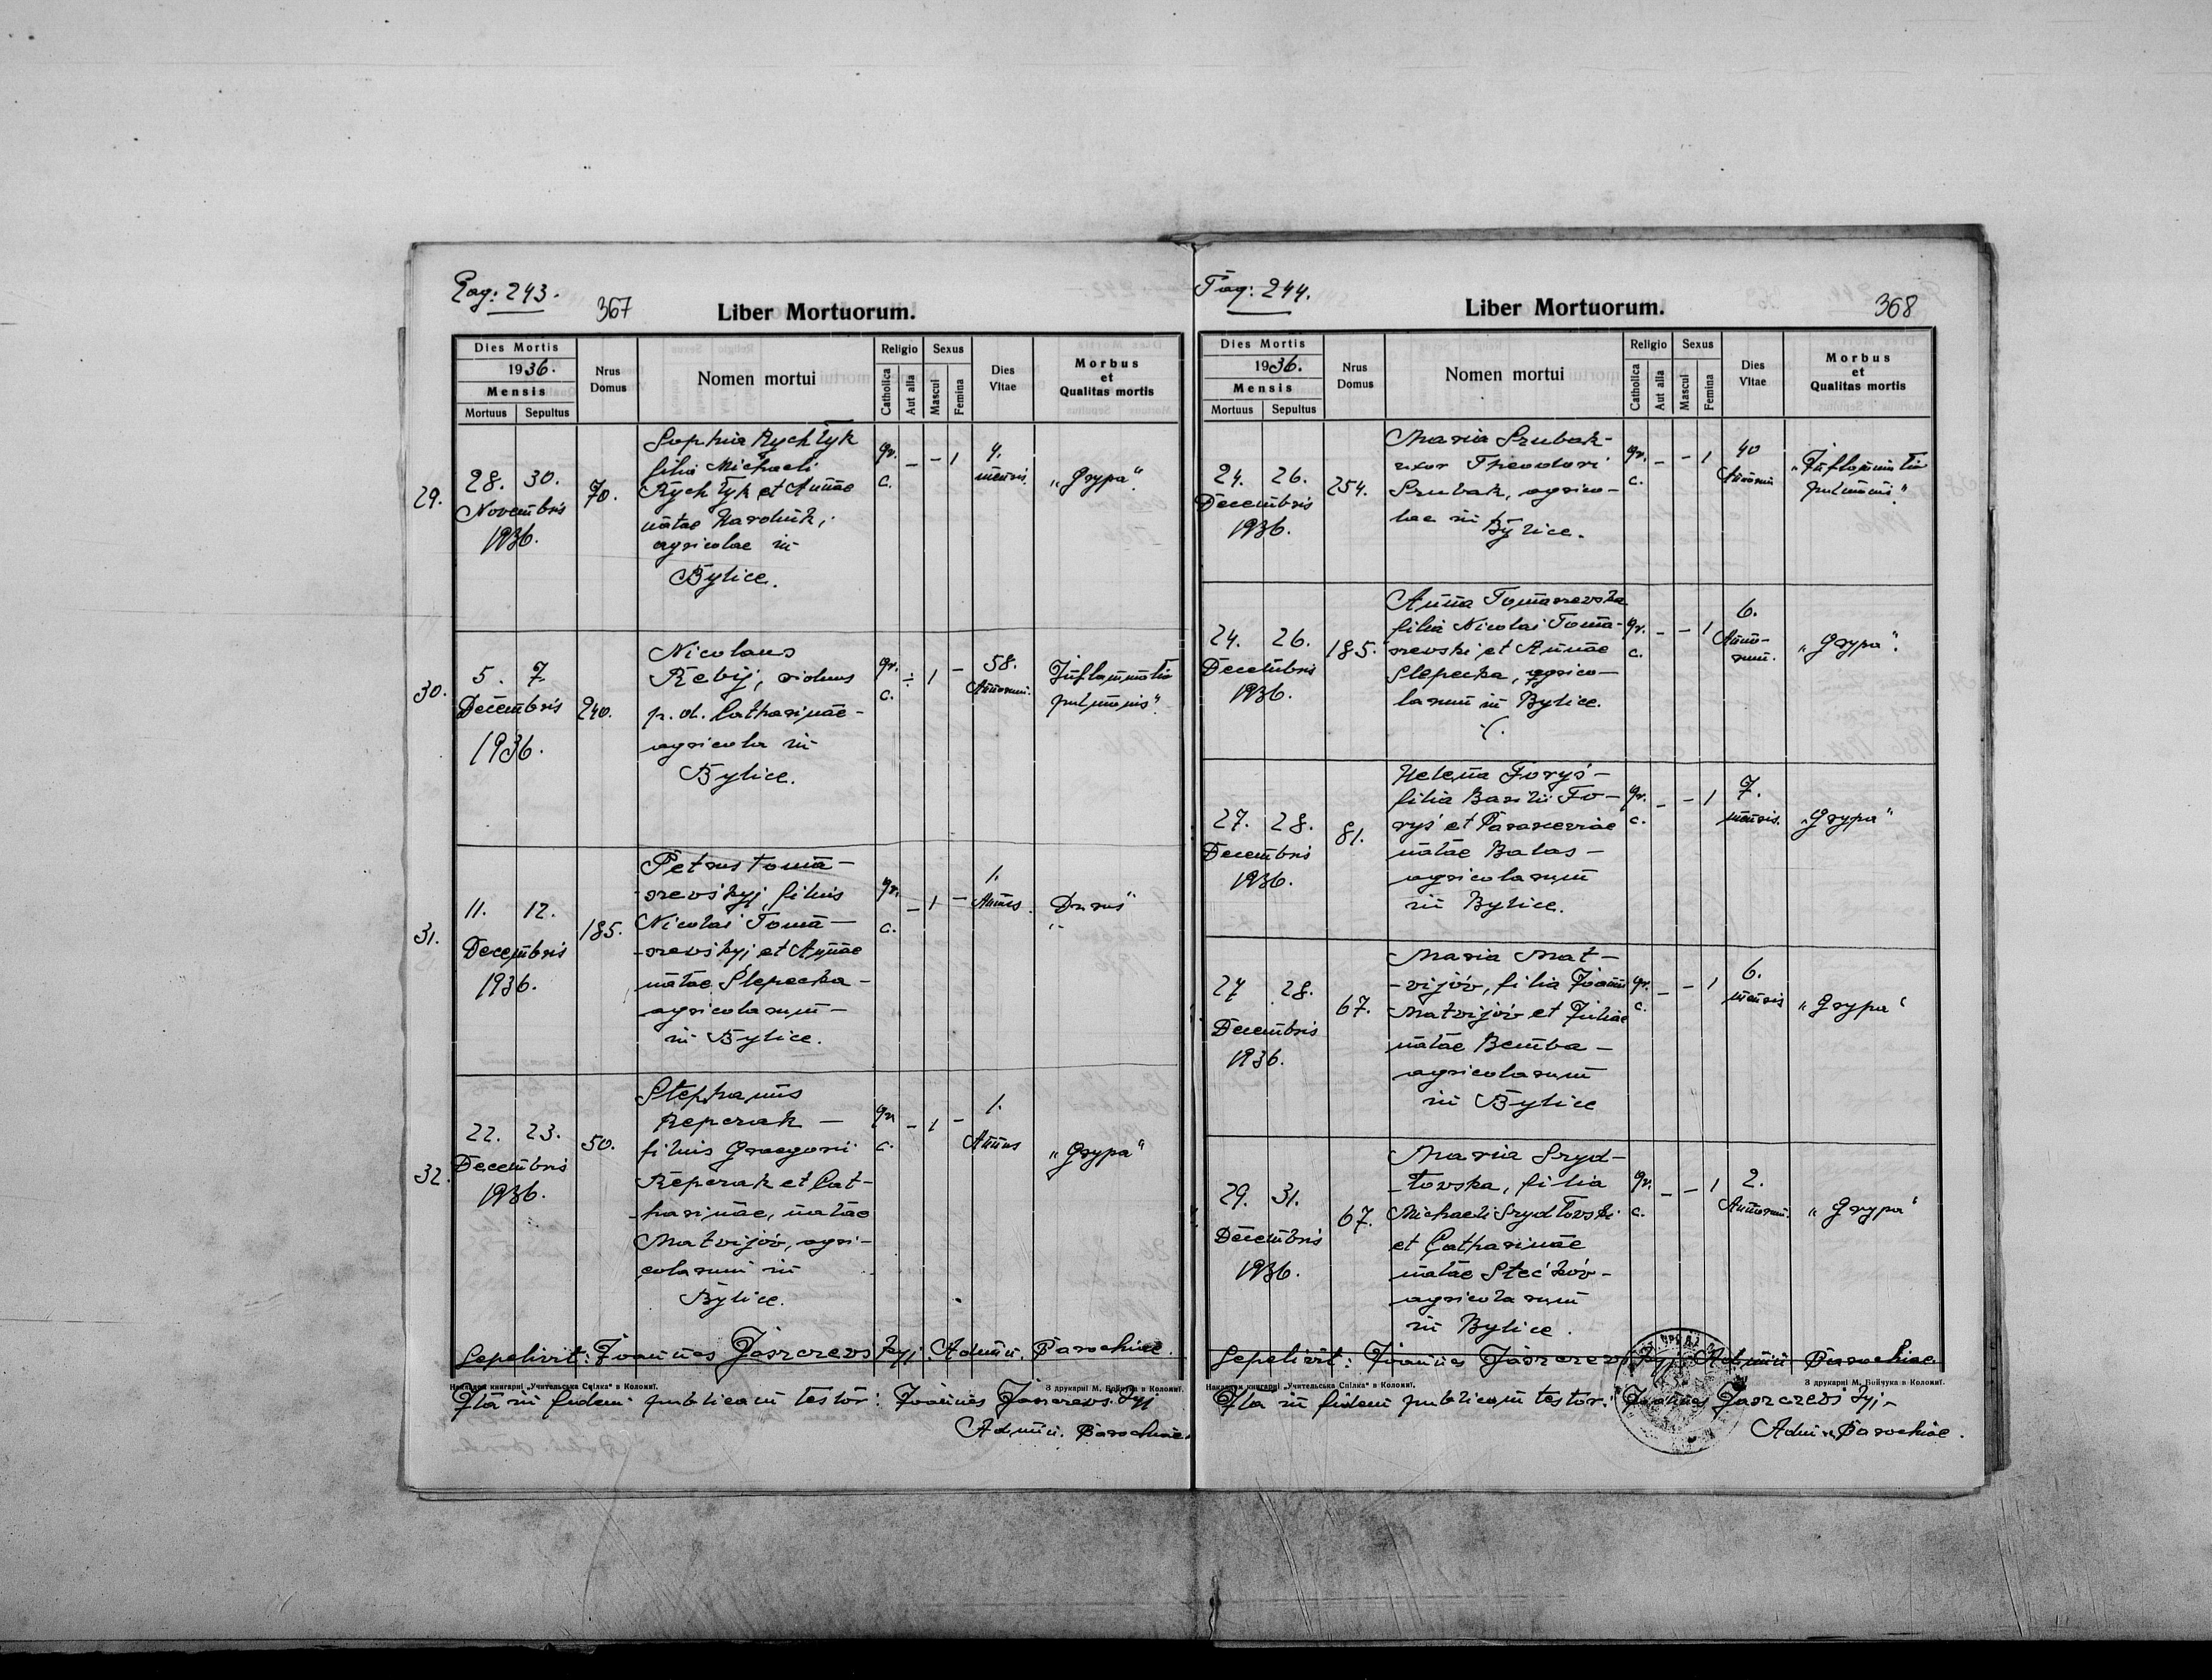 Pag: 243.
367
Liber Mortuorum.
Dies Mortis
1936.
Mensis
Mortuus Sepultus
Nrus Domus
Nomen mortui
Religio
Catholica
Aut alia
Sexus
Mascui
Femina
Dies Vitae
Morbus
et
Qualitas mortis
29.
28. 30.
Novembris
1936.
70.
Sophia Rychłyk
filia Michaeli
Rychłyk et Annae
natae Harolnik,
agricolae in
Bylice.
gr.
c.
- - 1
4.
mensis.
"Grypa".
30.
5. 7.
Decembris
1936.
240.
Nicolaus
Rebij, viduus
p. ol. Catharinae -
agricola in
Bylice.
gr.
c.
÷ 1 -
58.
Annorum.
Inflammatio
pulmonis".
31.
11. 12.
Decembris
1936.
185.
Petrus Toma-
-szevśkyj, filius
Nicolai Toma-
-szevśkyj et Annae
natae Slepecka -
agricolarum -
in Bylice.
gr.
c.
- 1 -
1.
Annus
32.
22. 23.
Decembris
1936.
50.
Stephanus
Repczak -
filius Graegorii
Repczak et Cat-
-harinae, natae
Matvijóv, agri-
colarum in
Bylice.
gr.
c.
- 1 -
1.
Annus
"Grypa"
Sepelivit: Joannes Jaszczevskyj. Admin. Parochiae.
Накладом книгарні „Учительська Спілка“ в Коломиї.
З друкарні М. Бойчука в Коломиї.
Ita in fidem publicam testor: Joannes Jaszczevskyj
Admin. Parochiae.
Pag: 244.
Liber Mortuorum.
368
Dies Mortis
1936.
Mensis
Mortuus Sepultus
Nrus Domus
Nomen mortui
Religio
Catholica
Aut alia
Sexus
Mascui
Femina
Dies Vitae
Morbus
et
Qualitas mortis
24. 26.
Decembris
1936.
254.
Maria Szubak-
uxor Theodori
Szubak, agrico-
lae in Bylice.
gr.
c.
- - 1
40
Annorum
"Inflammatio
pulmonis."
24. 26.
Decembris
1936.
185.
Anna Tomaszevska
filia Nicolai Toma-
szevski et Annae
Slepecka, agrico-
larum in Bylice.
gr.
c.
- - 1
6.
Anno-
rum.
"Grypa".
27. 28.
Decembris
1936.
81.
Helena Foryś -
filia Basilii Fo-
ryś et Parasceviae
natae Balas -
agricolarum
in Bylice.
gr.
c.
- - 1
7.
mensis.
"Grypa"
27 28.
Decembris
1936.
67.
Maria Mat-
-vijóv, filia Joanni
Matvijóv et Juliae
natae Bemba -
agricolarum
in Bylice
gr.
c.
- - 1
6.
mensis
"Grypa"
29. 31.
Decembris
1936.
67.
Maria Szyd-
-łovska, filia
Michaeli Szydłovski
et Catharinae
natae Stećkóv -
agricolarum
in Bylice.
gr.
c.
- - 1
2.
Annorum.
"Grypa"
Sepelivit: Joannes Jaszczevskyj. Admin Parochiae.
Накладом книгарні „Учительська Спілка“ в Коломиї.
З друкарні М. Бойчука в Коломиї.
Ita in fidem publicam testor: Joannes Jaszczevśkyj -
Admin. Parochiae.